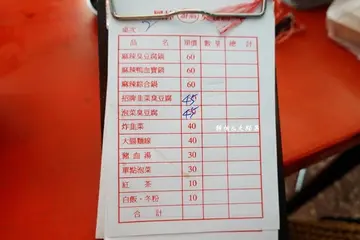 桌次：2
品 名 單價 數量 總計
麻辣臭豆腐鍋 60
麻辣鴨血寶鍋 60
麻辣綜合鍋 60
招牌韭菜臭豆腐 45
泡菜臭豆腐 45
炸韭菜 40
大腸麵線 40
豬血湯 30
單點泡菜 30
紅茶 10
白飯・冬粉 10
合計